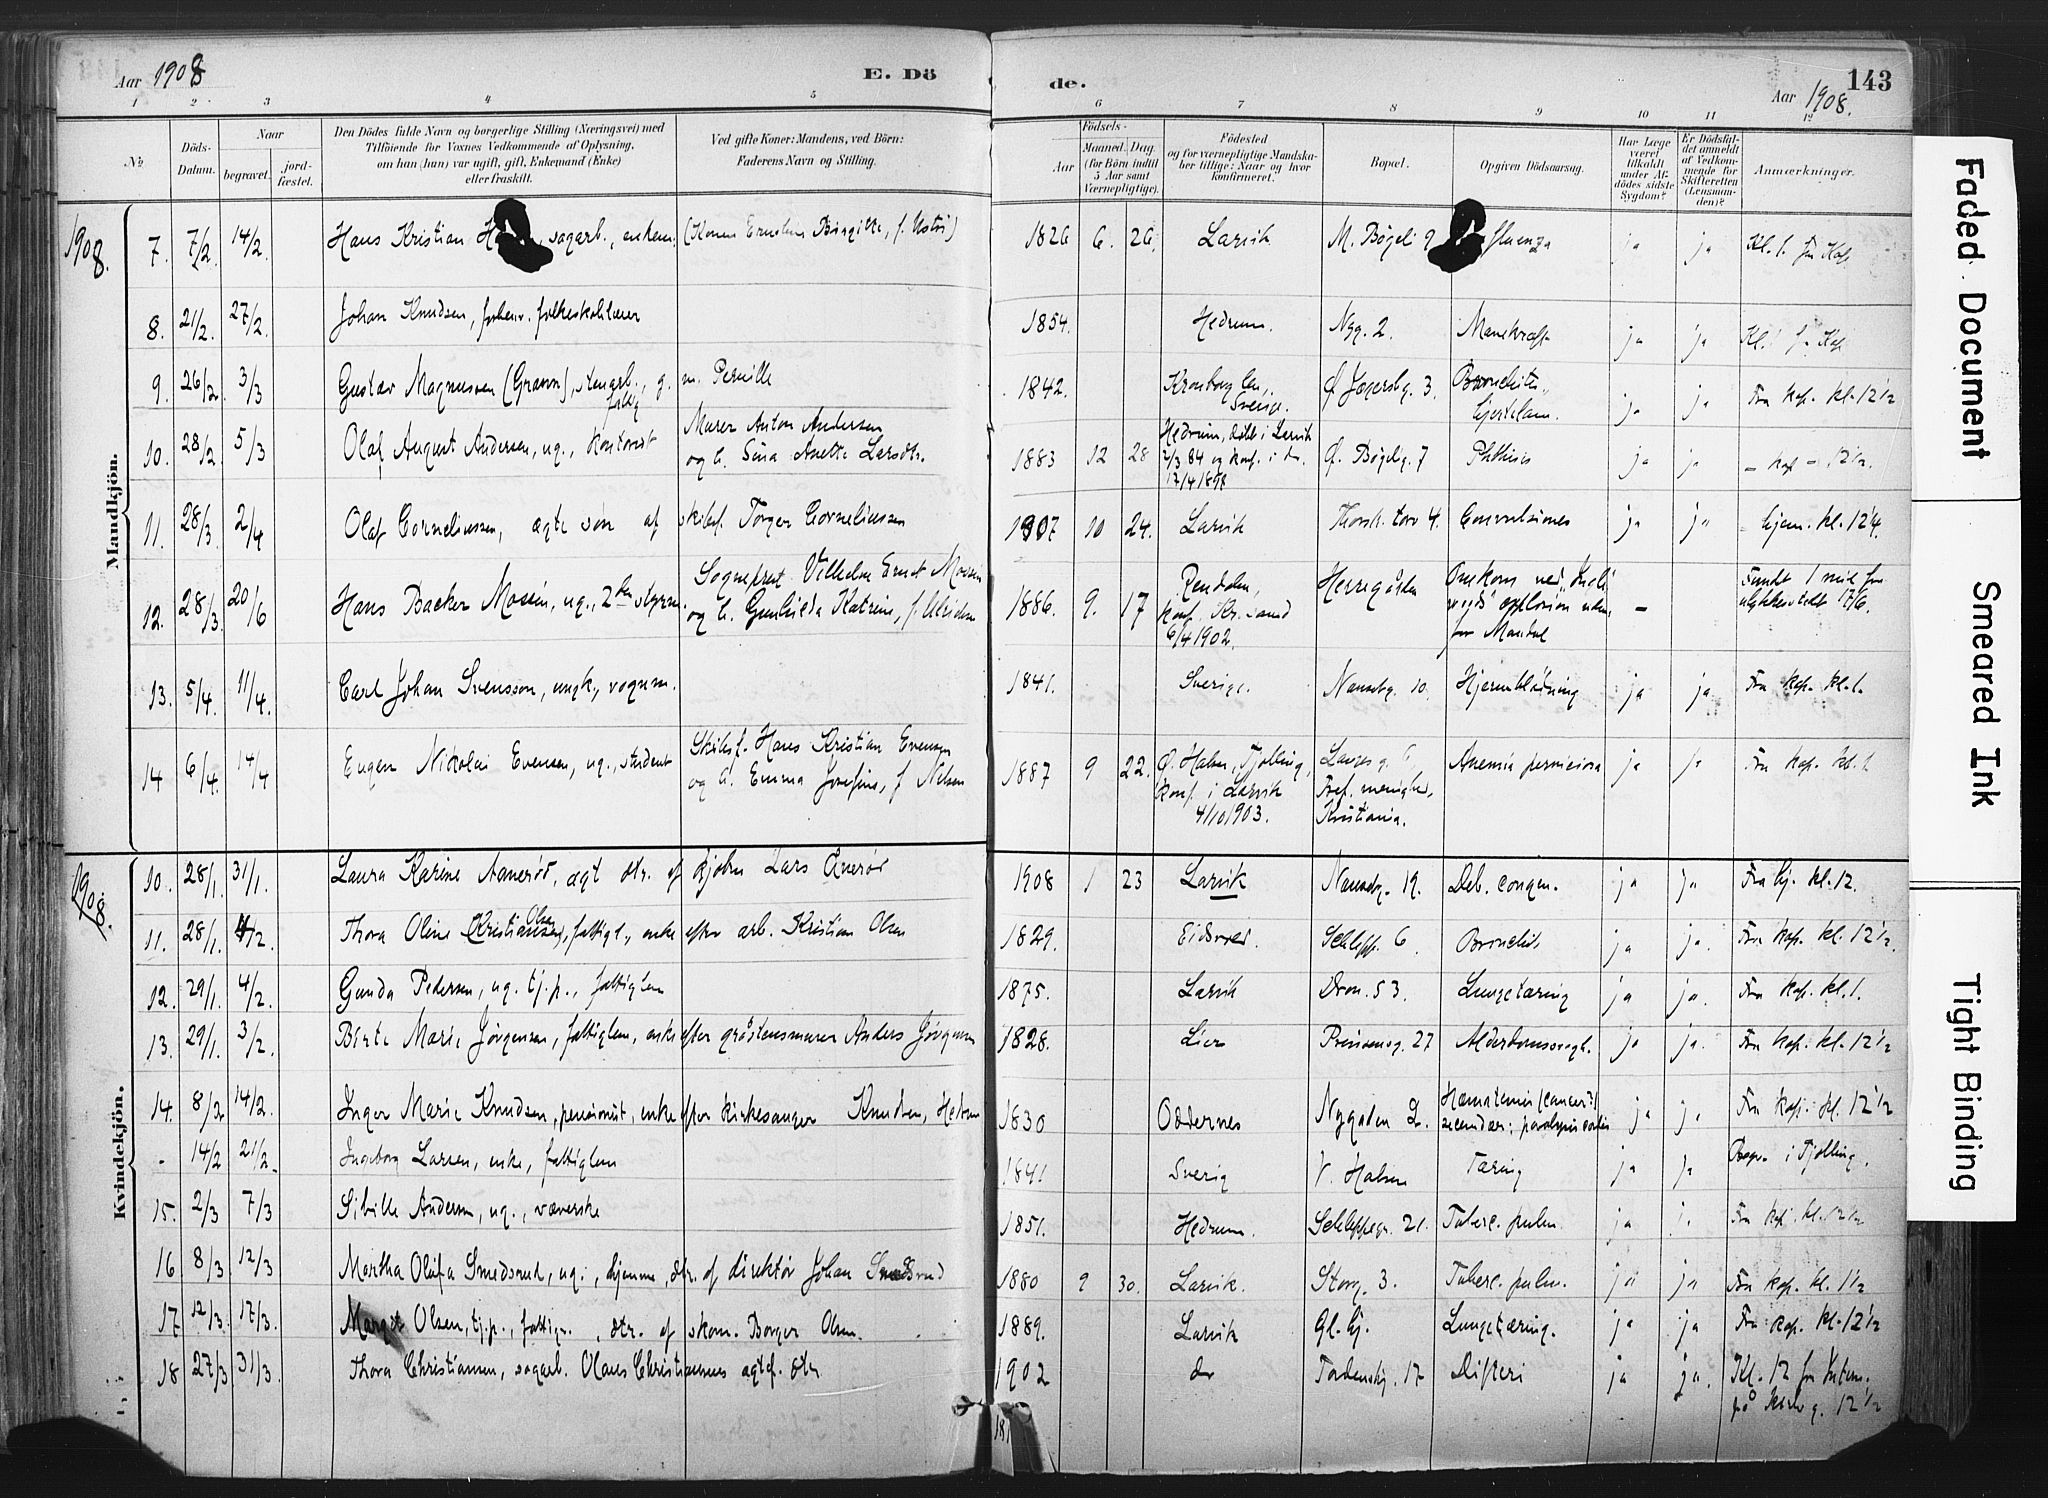 Aar 1908
E. Dö
de.
143
Aar 1908.
1 2 3 4 5 6 7 8 9 10 11 12
No.
Döds-Datum.
Naar
begravet.
jord-fæstet.
Den Dödes fulde Navn og borgerlige Stilling (Næringsvei) med
Tilföiende for Voxnes Vedkommende af Oplysning,
om han (hun) var ugift, gift, Enkemand (Enke)
eller fraskilt.
Ved gifte Koner: Mandens, ved Börn:
Faderens Navn og Stilling.
Födsels-
Aar
Maaned. Dag.
(for Börn indtil
5 Aar samt
Værnepligtige).
Födested
og for værnepligtige Mandska-
ber tillige: Naar og hvor
konfirmeret.
Bopæl.
Opgiven Dödsaarsag.
Har Læge
været
tilkaldt
under Af-
dödes sidste
Sygdom?
Er Dödsfal-
det anmeldt
af Vedkom-
mende for
Skifteretten
(Lensman-
den)?
Anmærkninger.
Mandkjön.
1908. 7. 7/2 14/2. Hans Kristian H , sagarb., enkem. (Konen Birgitte, f. ) 1826 6. 26. Larvik M. Bøgeli 9 fluenza ja ja Kl. 1. fra Kap
8. 21/2. 27/2. Johan Knudsen, forhenv. folkeskolelærer 1854. Hedrum. Nyg. 2. ja ja Kl. 1 fr Kap
9. 26/2. 3/3 Gustav Magnussen (Grann), stenarb., g. m. Pernille 1842. Kronborg len, Sverige. Ø. Jegersbg. 3. Bronchitis, hjertelam. ja ja Fra kap. kl. 12½
10. 28/2. 5/3 Olaf August Andersen, ug., kontorist fattig Murer Anton Andersen
og h. Sina Anette Larsdtr. 1883 12 28 Hedrum, døbt i Larvik
2/3 84 og konf. i do.
17/4 1898 Ø. Bøgelg. 7 Phthisis ja ja – kap – 12½.
11. 28/3. 2/4 Olaf Corneliussen, ægte søn af skibsf. Torger Corneliussen 1907 10 24. Larvik Thorsk. torv 4. Convulsiones ja ja – hjem. kl. 12¼.
12. 28/3. 20/6 Hans Backer Mossin, ug., 2den styrm. Sogneprest Vilhelm Ernst Mossin
og h. Gunhilda Katrine, f. Ulriksen 1886. 9. 17 Rendalen,
konf. Kr.sand
6/4 1902. Herregården Omkom ved "
" explosion uden
for Mandal – Fundet 1 mil fra
ulykkesstedet 17/6.
13. 5/4. 11/4. Carl Johan Svensson, ungk., vognm. 1841. Sverige. Nansetg. 10. Hjerneblødning ja ja Fra kap. kl. 1.
14 6/4. 14/4 Eugen Nikolai Evensen, ug., student Skibsf. Hans Kristian Evensen
og h. Emma Josefine, f. Nilsen 1887 9 22. Ø. Halsen, Tjølling,
konf. i Larvik
4/10 1903. Langes g. 6,
Tref. menighed,
Kristiania. Anemia perniciosa ja ja Fra kap. kl. 1
Kvindekjön.
1908. 10. 28/1. 31/1. Laura Karine Aanerød, ægt dtr. af Lars Anerød 1908 1 23 Larvik Nansetg. 19. Deb. congen. ja ja Fra hj. kl. 12.
11. 28/1. 4/2. Thora Oline Christiansen Olsen, fattigl., enke efter arb. Kristian Olsen 1829. Eidsvold. Schlepp. 6 Bronchit ja ja. Fra kap. kl. 12½.
12. 29/1. 4/2. Gunda Pedersen, ug. tj.p., fattiglem 1875. Larvik Dron. 53. Lungetæring ja ja. Fra kap. kl. 1.
13. 29/1. 3/2. Birte Marie Jørgensen, fattiglem, enke efter gråstensmurer Anders Jørgensen 1828. Lier Prinsensg. 27 Alderdomssvagh. ja ja. Fra kap. kl. 12½
14. 8/2 14/2. Inger Marie Knudsen, pensionist, enke efter kirkesanger Knudsen, Hedrum 1830 Oddernes Nygaden 2. Hæmatemesis (cancer?)
secundær: paralysis cordis ja ja Fra kap. kl. 12½
- 14/2 21/2. Ingeborg Larsen, enke, fattiglem 1841 Sverig V. Halsen Tæring ja ja Begr. i Tjølling.
15. 2/3 7/3 Sibille Andersen, ug., væverske 1851. Hedrum. Schleppegr. 21. Tuberc. pulm. ja ja Fra kap. kl. 12½
16 8/3 12/3 Martha Olufa Smedsrud, ug., hjemme, dtr. af direktør Johan Smedsrud 1880 9 30. Larvik. Storg. 3. Tuberc. pulm. ja ja Fra kap. kl. 1½
17 12/3. 17/3. Margit Olsen, tj.p., fattigv., dtr. af skom. Borger Olsen. 1889. Larvik Gl. hj. Lungetæring. ja ja Fra kap. kl. 12½
18 27/3 31/3. Thora Christiansen, sagarb. Olaus Christiansens ægtef. dtr 1902 do Tordenskj. 17 Difteri ja ja. Kl. 12 fr
på 12½
181
Faded Document
Smeared Ink
Tight Binding